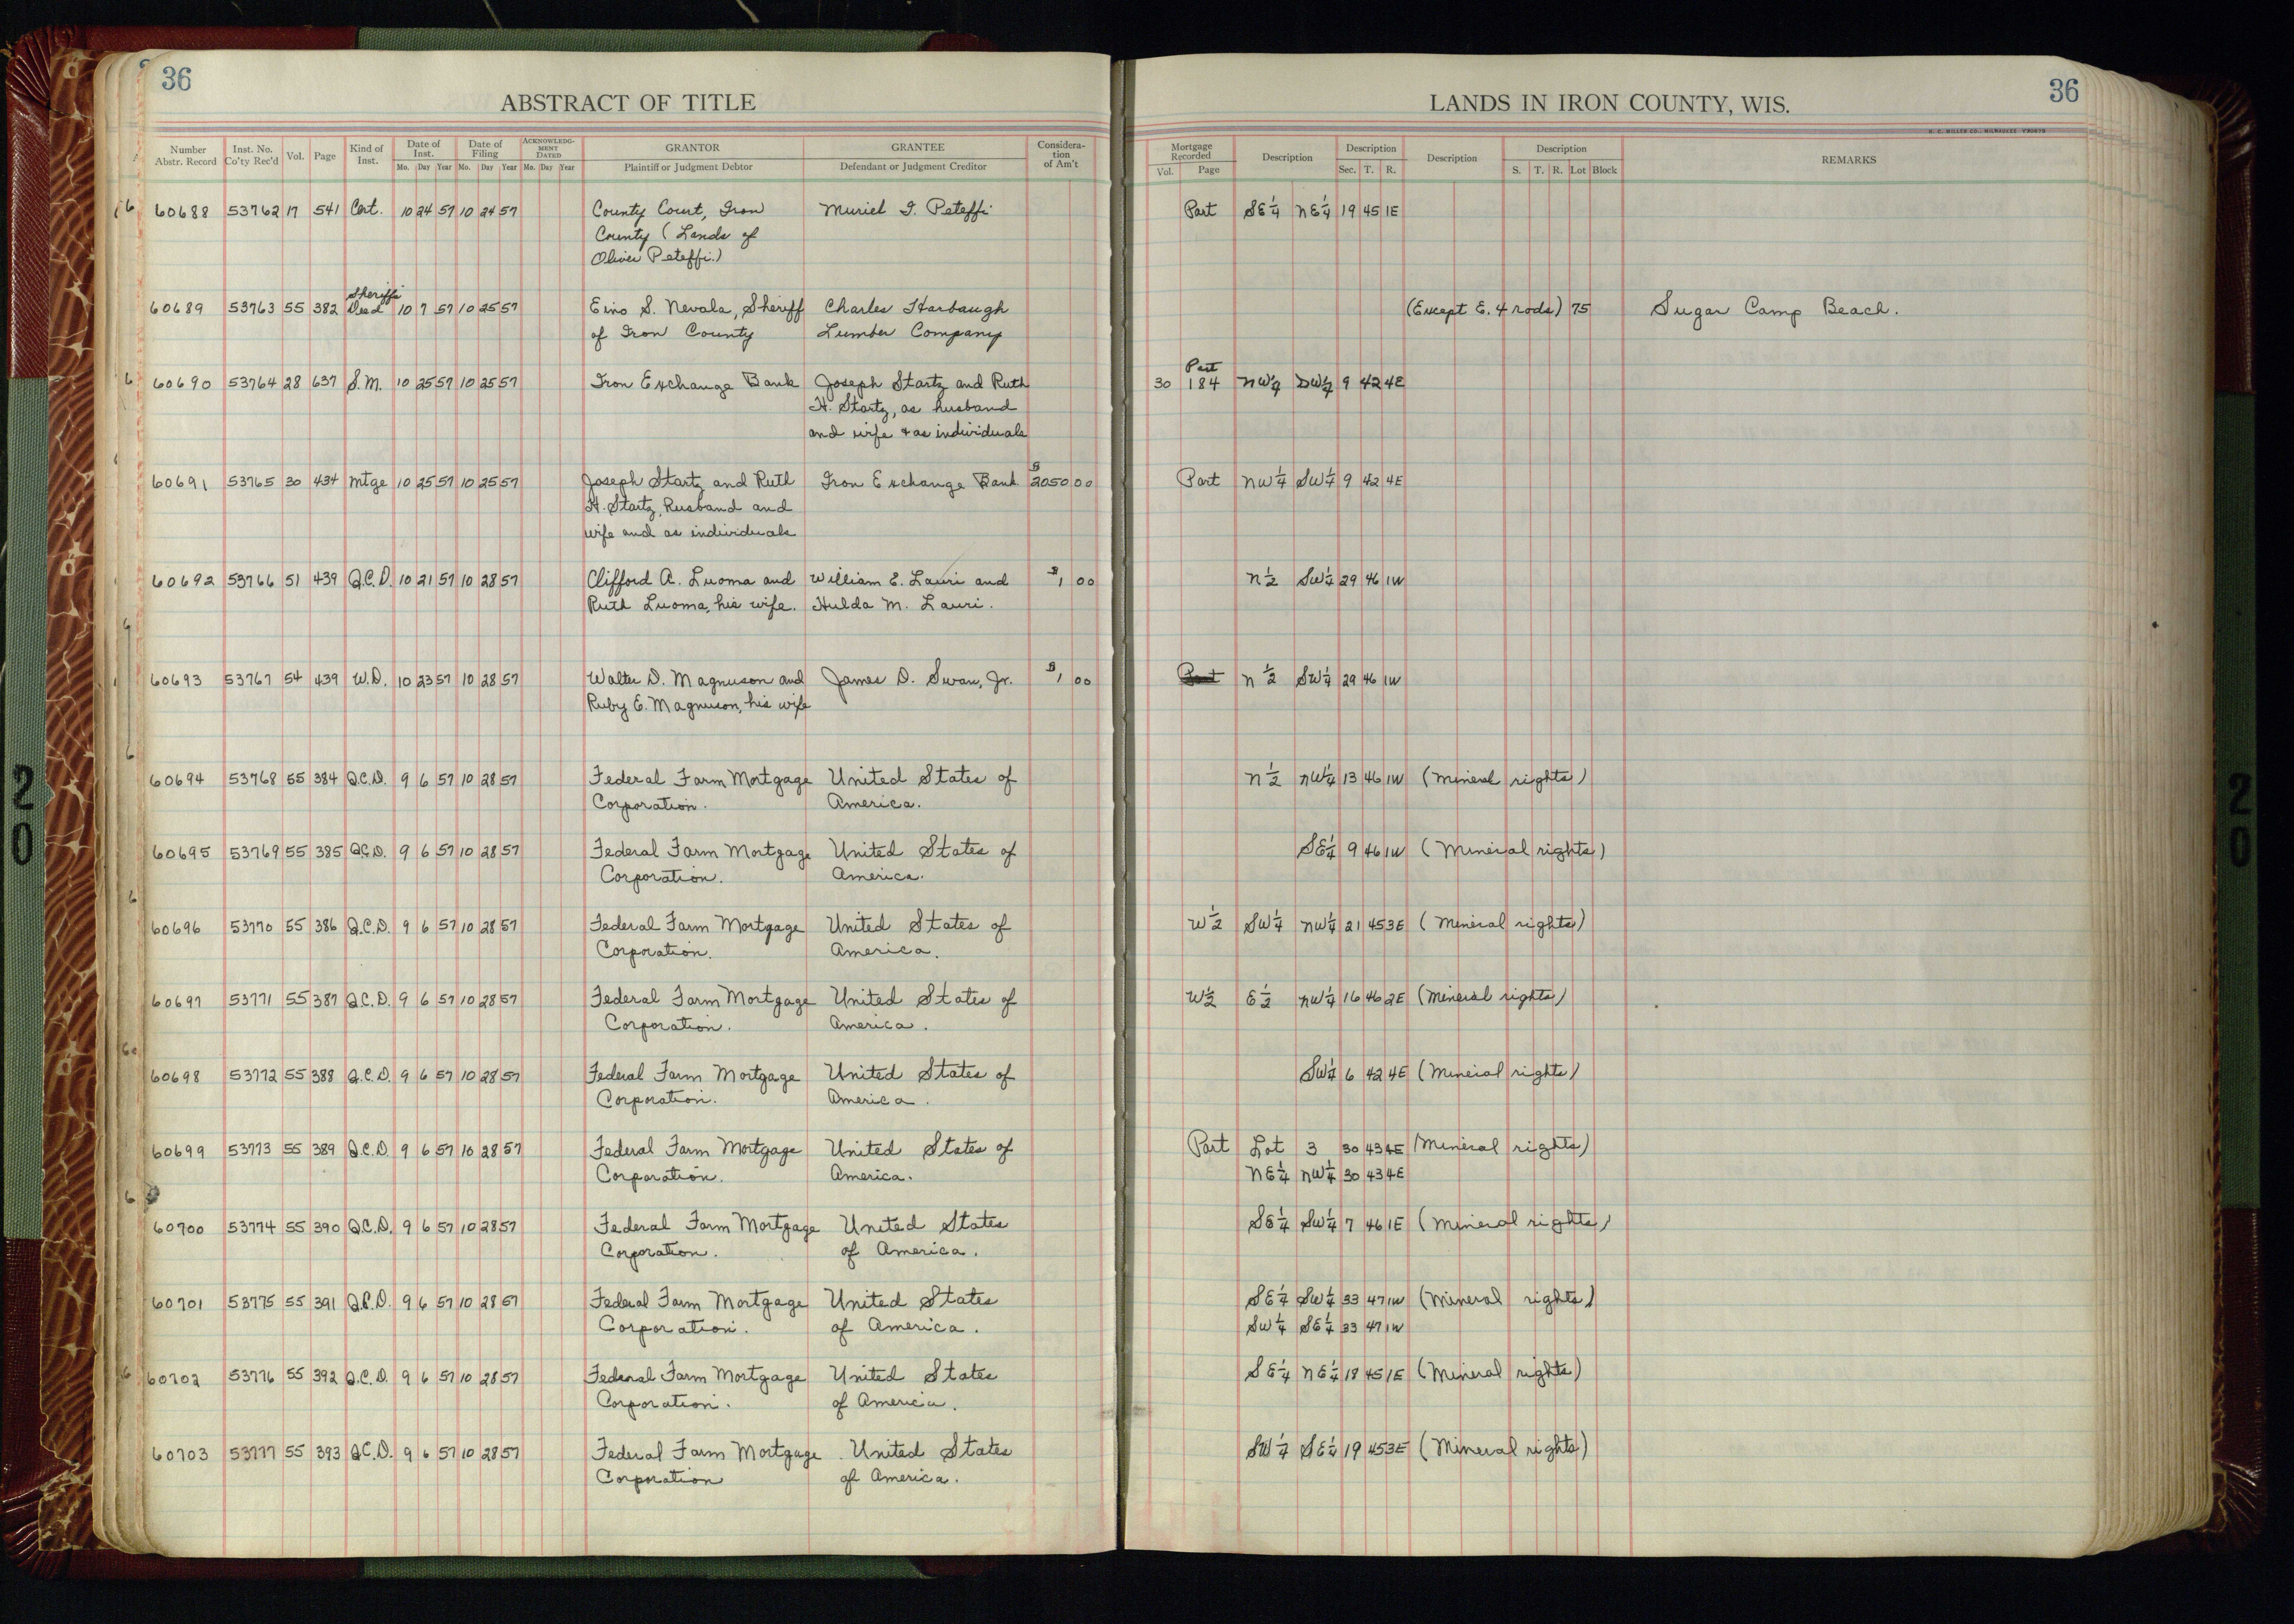 36
ABSTRACT OF TITLE
LANDS IN IRON COUNTY, WIS.
36
H. C. MILLER CO., MILWAUKEE
Number Abstr. Record | Inst. No. Co'ty Rec'd | Vol. | Page | Kind of Inst. | Date of Inst. Mo. Day Year | Date of Filing Mo. Day Year | ACKNOWLEDGMENT DATED Mo. Day Year | GRANTOR Plaintiff or Judgment Debtor | GRANTEE Defendant or Judgment Creditor | Consideration of Am't | Mortgage Recorded Vol. Page | Description | Description Sec. T. R. | Description | Description S. T. R. Lot Block | REMARKS
60688 53762 17 541 Cert. 10 24 57 10 24 57 County Court, Iron Muriel I. Peteffi Part SE¼ NE¼ 19 45 1E
County (Lands of
Oliver Peteffi.)
Sheriffs
60689 53763 55 382 Deed 10 7 57 10 25 57 Eino S. Nevala, Sheriff Charles Harbaugh (Except E. 4 rods) 75 Sugar Camp Beach.
of Iron County Lumber Company
Part
60690 53764 28 637 S.M. 10 25 57 10 25 57 Iron Exchange Bank Joseph Startz and Ruth 30 184 NW¼ SW¼ 9 42 4E
H. Startz, as husband
and wife & as individuals
60691 53765 30 434 Mtge 10 25 57 10 25 57 Joseph Startz and Ruth Iron Exchange Bank $2050 00 Part NW¼ SW¼ 9 42 4E
H. Startz, husband and
wife and as individuals
60692 53766 51 439 Q.C.D. 10 21 57 10 28 57 Clifford A. Luoma and William E. Lauri and $1 00 N½ SW¼ 29 46 1W
Ruth Luoma, his wife. Hulda M. Lauri.
60693 53767 54 439 W.D. 10 23 57 10 28 57 Walter D. Magnuson and James D. Swan, Jr. $1 00 Part N½ SW¼ 29 46 1W
Ruby E. Magnuson, his wife
60694 53768 55 384 Q.C.D. 9 6 57 10 28 57 Federal Farm Mortgage United States of N½ NW¼ 13 46 1W (Mineral rights)
Corporation. America.
60695 53769 55 385 Q.C.D. 9 6 57 10 28 57 Federal Farm Mortgage United States of SE¼ 9 46 1W (Mineral rights)
Corporation. America.
60696 53770 55 386 Q.C.D. 9 6 57 10 28 57 Federal Farm Mortgage United States of W½ SW¼ NW¼ 21 45 3E (Mineral rights)
Corporation. America.
60697 53771 55 387 Q.C.D. 9 6 57 10 28 57 Federal Farm Mortgage United States of W½ E½ NW¼ 16 46 2E (Mineral rights)
Corporation. America.
60698 53772 55 388 Q.C.D. 9 6 57 10 28 57 Federal Farm Mortgage United States of SW¼ 6 42 4E (Mineral rights)
Corporation. America.
60699 53773 55 389 Q.C.D. 9 6 57 10 28 57 Federal Farm Mortgage United States of Part Lot 3 30 43 4E (Mineral rights)
Corporation. America. NE¼ NW¼ 30 43 4E
60700 53774 55 390 Q.C.D. 9 6 57 10 28 57 Federal Farm Mortgage United States SE¼ SW¼ 7 46 1E (Mineral rights)
Corporation. of America.
60701 53775 55 391 Q.C.D. 9 6 57 10 28 57 Federal Farm Mortgage United States SE¼ SW¼ 33 47 1W (Mineral rights)
Corporation. of America. SW¼ SE¼ 33 47 1W
60702 53776 55 392 Q.C.D. 9 6 57 10 28 57 Federal Farm Mortgage United States SE¼ NE¼ 18 45 1E (Mineral rights)
Corporation. of America.
60703 53777 55 393 Q.C.D. 9 6 57 10 28 57 Federal Farm Mortgage United States SW¼ SE¼ 19 45 3E (Mineral rights)
Corporation of America.
20
20